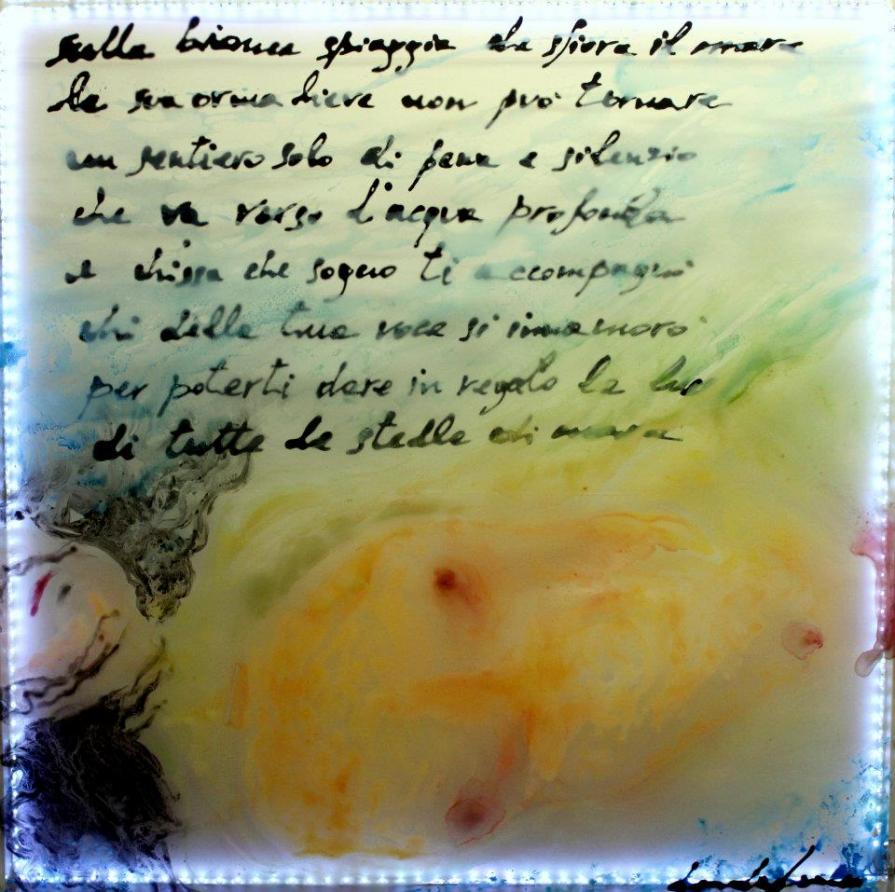 sulla bianca spiaggia che sfiora il mare
la sua orma lieve non può tornare
un sentiero solo di pena e silenzio
che va verso l'acqua profonda
e chissa che sogno ti accompagnò
chi della tua voce si innamorò
per poterti dare in regalo la luce
di tutte le stelle di mare